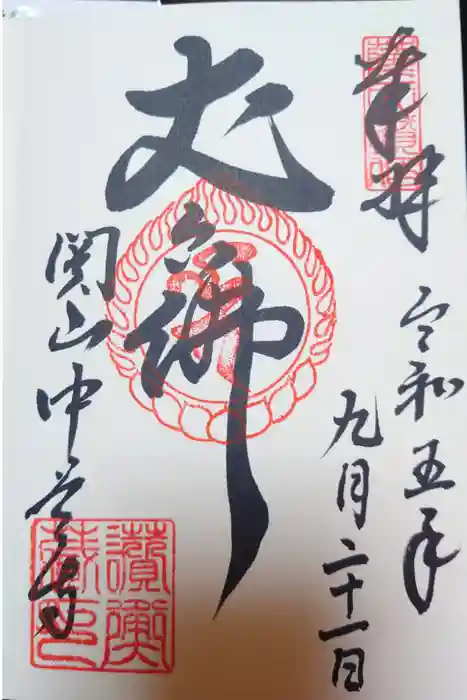 奉拝
令和五年
九月二十一日
丈六佛
関山中尊寺
讃衡
蔵印